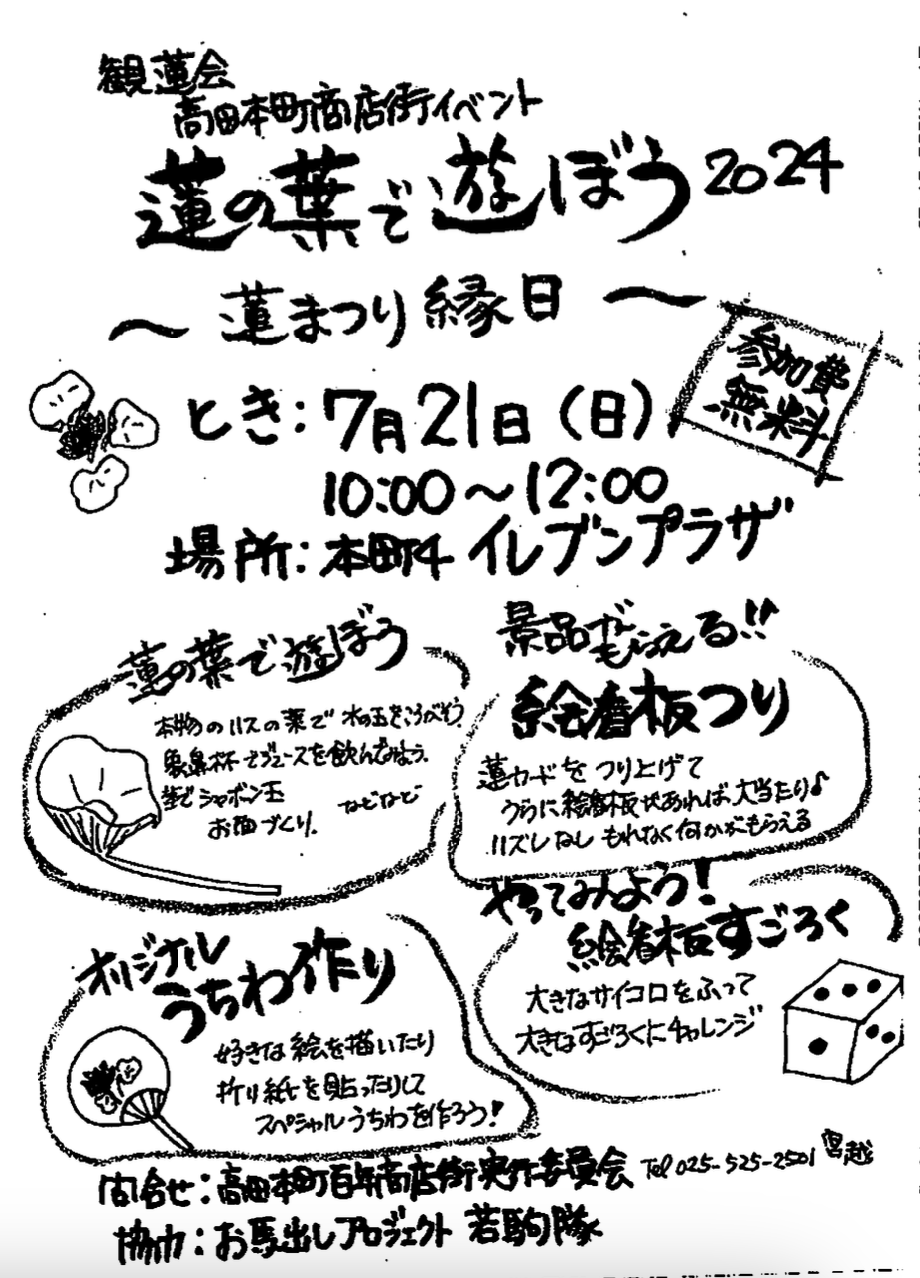 観蓮会
高田本町商店街イベント
蓮の葉で遊ぼう2024
〜蓮まつり縁日〜
参加費
無料
とき:7月21日(日)
10:00〜12:00
場所:本町4 イレブンプラザ
蓮の葉で遊ぼう
本物のハスの葉で 水の玉をころがそう。
象鼻杯でジュースを飲んでみよう。
茎でシャボン玉
お面づくり。 などなど
景品がもらえる!!
絵看板つり
蓮カードをつり上げて
うらに絵看板があれば、大当たり♪
ハズレなし もれなく何かがもらえる
オリジナル
うちわ作り
好きな絵を描いたり
折り紙を貼ったりして
スペシャルうちわを作ろう!
やってみよう!
絵看板すごろく
大きなサイコロをふって
大きなすごろくにチャレンジ
問合せ:高田本町百年商店街実行委員会 Tel 025-525-2501 宮越
協力:お馬出しプロジェクト 若駒隊